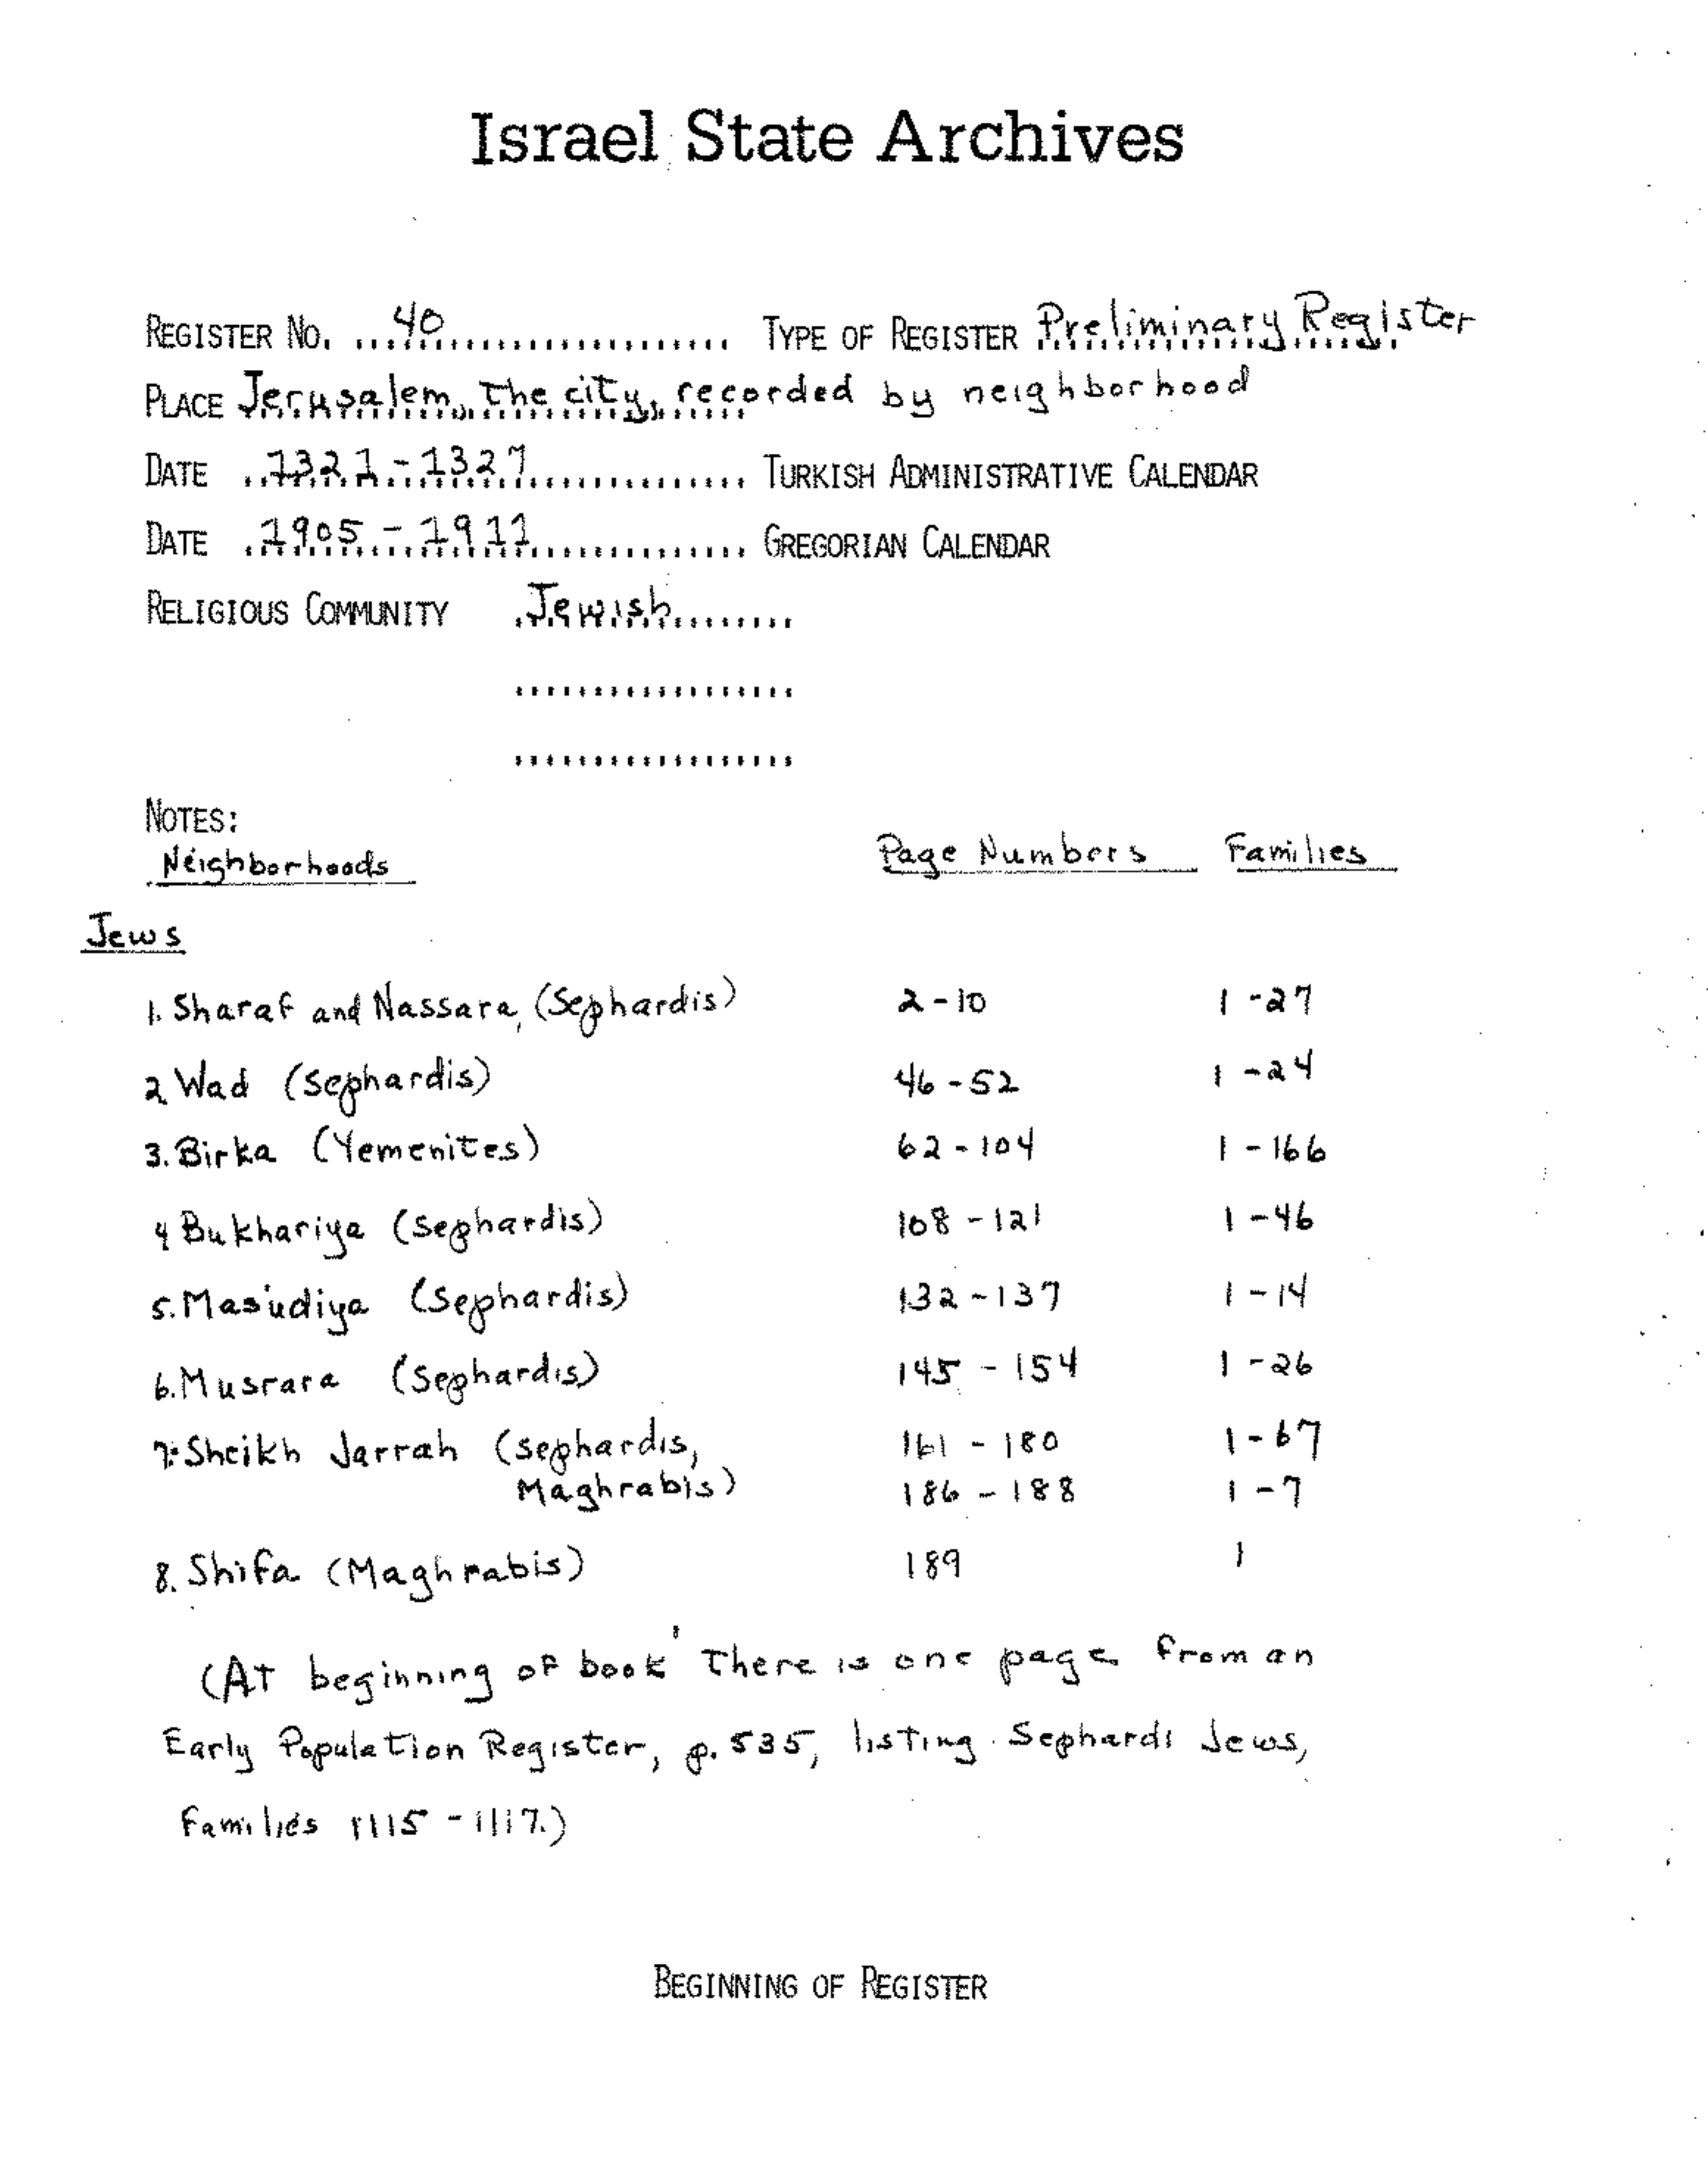 Israel State Archives
REGISTER NO. ...40........................ TYPE OF REGISTER Preliminary Register
PLACE Jerusalem, the city, recorded by neighborhood
DATE ..1321-1327.............. TURKISH ADMINISTRATIVE CALENDAR
DATE .1905-1911.............. GREGORIAN CALENDAR
RELIGIOUS COMMUNITY .Jewish........
..................
..................
NOTES:
Neighborhoods Page Numbers Families
Jews
1. Sharaf and Nassara, (Sephardis) 2-10 1-27
2 Wad (Sephardis) 46-52 1-24
3. Birka (Yemenites) 62-104 1-166
4 Bukhariya (Sephardis) 108-121 1-46
5. Mas'udiya (Sephardis) 132-137 1-14
6. Musrara (Sephardis) 145-154 1-26
7. Sheikh Jarrah (Sephardis, 161-180 1-67
Maghrabis) 186-188 1-7
8. Shifa (Maghrabis) 189 1
(At beginning of book there is one page from an
Early Population Register, p. 535, listing Sephardi Jews,
Families 1115-1117.)
BEGINNING OF REGISTER